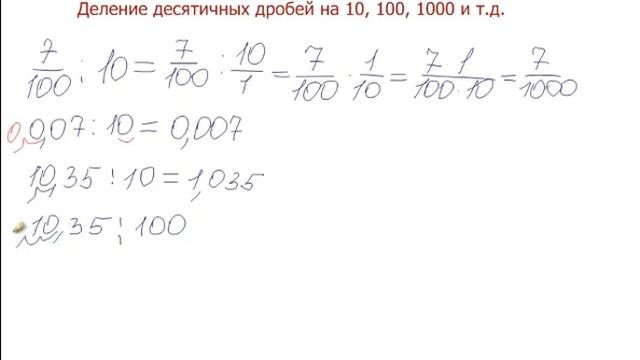 Деление десятичных дробей на 10, 100, 1000 и т.д.
7/100 : 10 = 7/100 : 10/1 = 7/100 · 1/10 = 7 1/100·10 = 7/1000
0,0,07 : 10 = 0,007
10,35 : 10 = 1,035
10,35 : 100